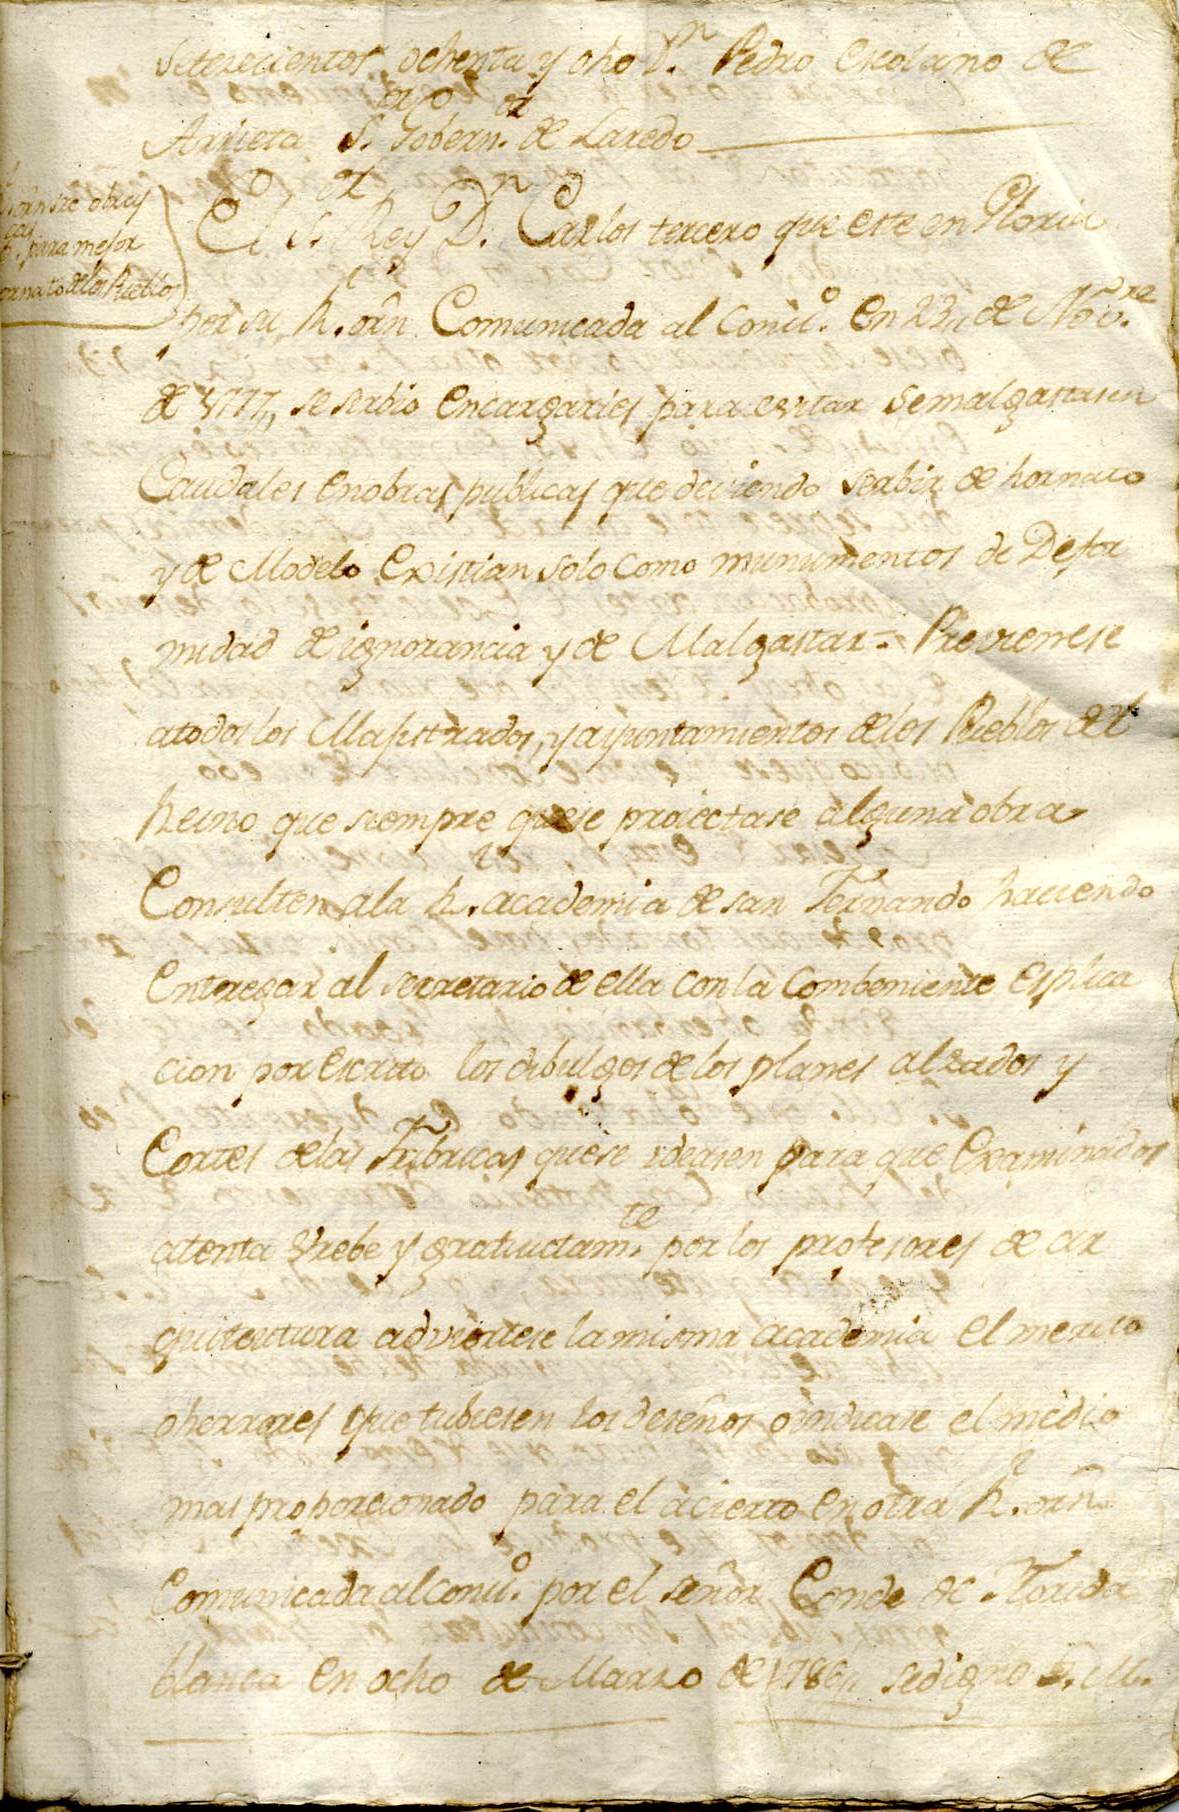 setezecientos ochenta y oho Dn. Pedro Escolano de
Arrieta Sr. Gobernor. de Laredo
orn sre obras
para mejor
ornato de los Pueblos
El Sr. Rey Dn. Carlos tercero que este en Gloria
por su R. orn Comunicada al Conso. En 23,, de Nove.
de 1777,, se serbio Encargarles para evitar se malgastasen
Caudales en obras publicas que deviendo serbir de hornato
y de Modelo Existian solo como munumentos de Defor
midad de ignorancia y de Malgastar = Previenese
a todos los Majistrados, y ayuntamientos de los Pueblos del
Reino que siempre que se proiectase alguna obra
Consulten a la Rl. academia de san Fernando haciendo
Entregar al secretario de ella con la Combeniente esplica
cion por escrito los dibulgos de los planes alzados y
Cortes de las Fabricas que se ideasen para que Examinados
atenta brebe y gratuitamte. por los profesores de ar
quitectura adviertese la misma academia el merito
o herrores que tubiesen los deseños o indicase el medio
mas proporcionado para el acierto en otra Rl. orn
Comunicada al Conso. por el señor Conde de Florida
blanca en ocho de Marzo de 1786,, se digno S. M.